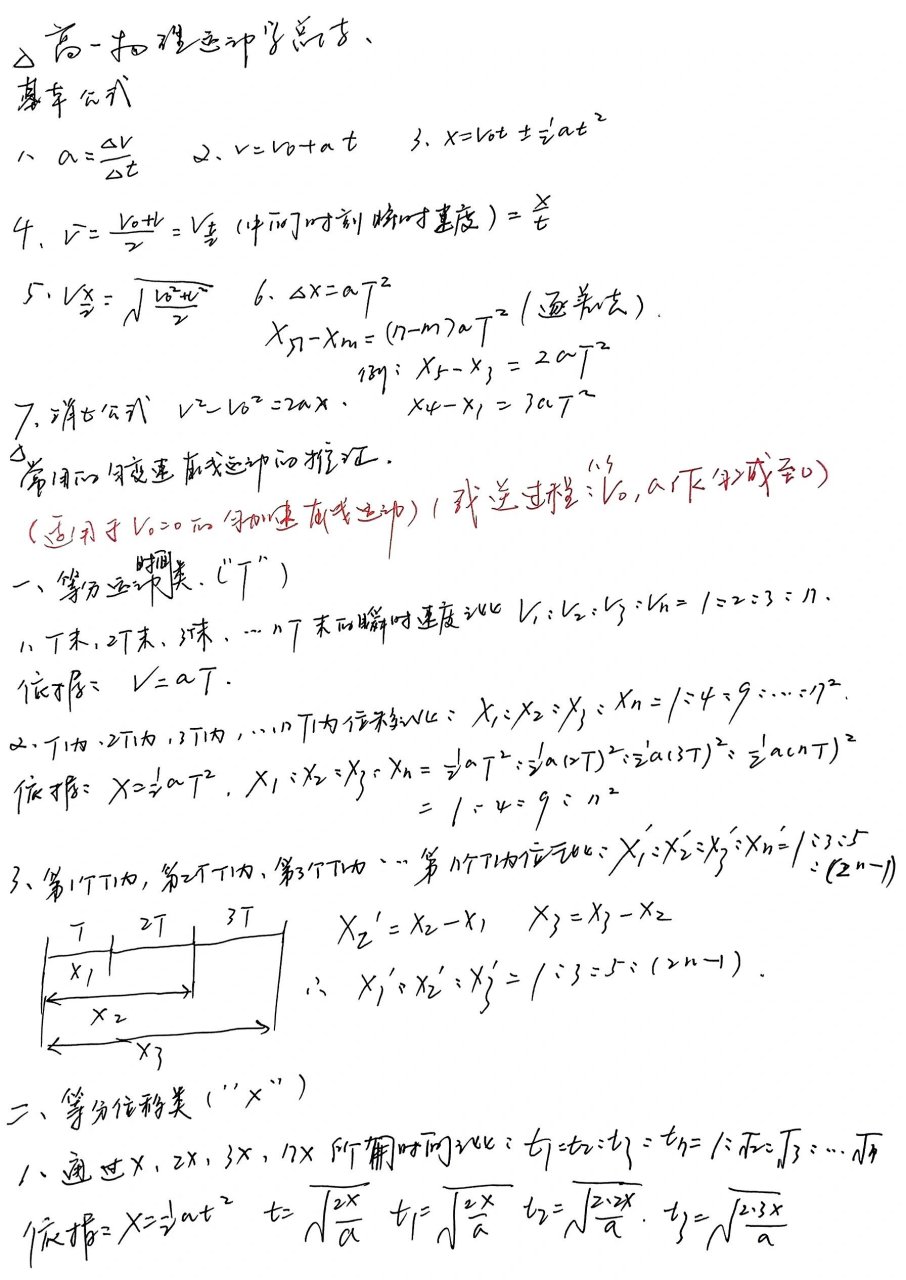 △ 高一物理运动学总结、
基本公式
1、a=Δv/Δt  2、v=v₀+at  3、x=v₀t±½at²
4、v̄=(v₀+v)/2=v_{t/2}(中间时刻瞬时速度)=x/t
5、v_{x/2}=√((v₀²+v²)/2)  6、Δx=aT²
xₙ-xₘ=(n-m)aT²(逐差法).
例: x₅-x₃=2aT²
7、消t公式 v²-v₀²=2ax. x₄-x₁=3aT²
△常用的匀变速直线运动的推证.
(适用于v₀=0的匀加速直线运动)(或逆过程:以v₀,a匀减至0)
一、等分运动时间类.("T")
1、T末,2T末、3T末、…nT末的瞬时速度之比 v₁:v₂:v₃:vₙ=1:2:3:n.
依据: v=aT.
2、T内、2T内,3T内,…nT内位移之比: x₁:x₂:x₃:xₙ=1:4:9:…:n².
依据: x=½aT², x₁:x₂:x₃:xₙ=½aT²:½a(2T)²:½a(3T)²:½a(nT)²
=1:4:9:n²
3、第1个T内,第2个T内、第3个T内…第n个T内位之比: x₁′:x₂′:x₃′:xₙ′=1:3:5
:(2n-1)
T 2T 3T
x₂′=x₂-x₁  x₃=x₃-x₂
x₁
∴ x₁′:x₂′:x₃′=1:3:5:(2n-1).
x₂
x₃
二、等分位移类(''x'')
1、通过x,2x,3x,nx所用时间之比: t₁:t₂:t₃:tₙ=1:√2:√3:…√n
依据: x=½at²  t=√(2x/a)  t₁=√(2x/a)  t₂=√(2·2x/a).  t₃=√(2·3x/a)